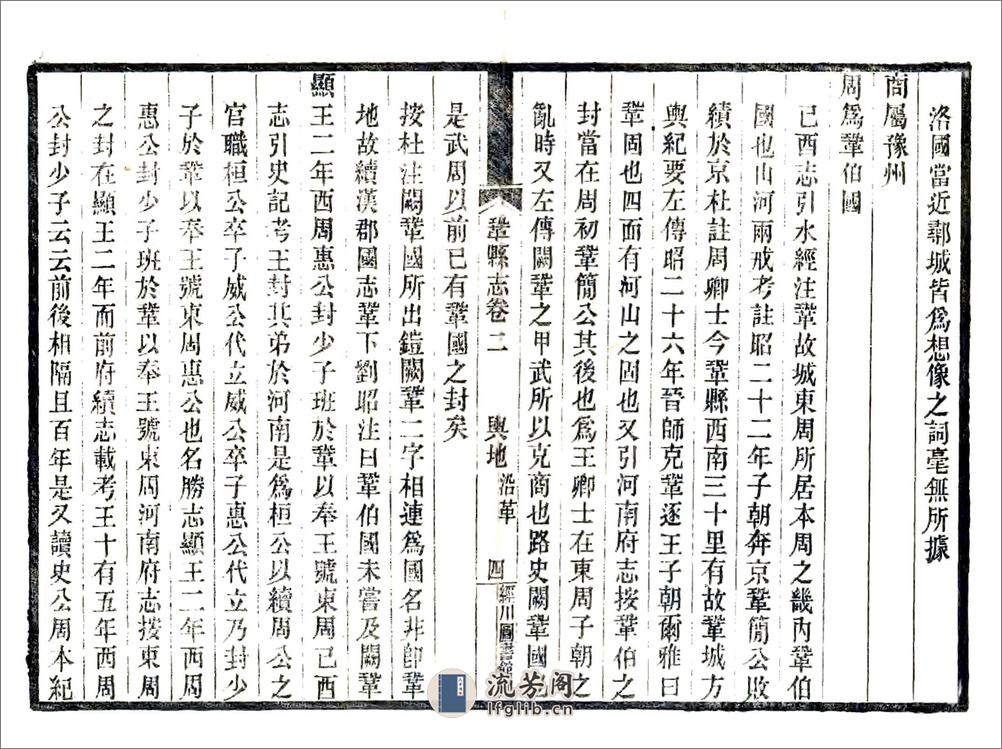 洛國當近鄩城皆爲想像之詞毫無所據
商屬豫州
周爲鞏伯國
已酉志引水經注鞏故城東周所居本周之畿內鞏伯
國也山河兩戒考註昭二十二年子朝奔京鞏簡公敗
績於京杜註周卿士今鞏縣西南三十里有故鞏城方
輿紀要左傳昭二十六年晉師克鞏逐王子朝爾雅曰
鞏固也四面有河山之固也又引河南府志按鞏伯之
封當在周初鞏簡公其後也爲王卿士在東周子朝之
亂時又左傳闕鞏之甲武所以克商也路史闕鞏國
鞏縣志卷二 輿地 沿革 四 經川圖書館
是武周以前已有鞏國之封矣
按杜注闕鞏國所出鎧闕鞏二字相連爲國名非卽鞏
地故續漢郡國志鞏下劉昭注曰鞏伯國未嘗及闕鞏
顯王二年西周惠公封少子班於鞏以奉王號東周已酉
志引史記考王封其弟於河南是爲桓公以續周公之
官職桓公卒子威公代立威公卒子惠公代立乃封少
子於鞏以奉王號東周惠公也名勝志顯王二年西周
惠公封少子班於鞏以奉王號東周河南府志按東周
之封在顯王二年而前府續志載考王十有五年西周
公封少子云云前後相隔且百年是又讀史公周本紀
流芳阁
lfglib.cn